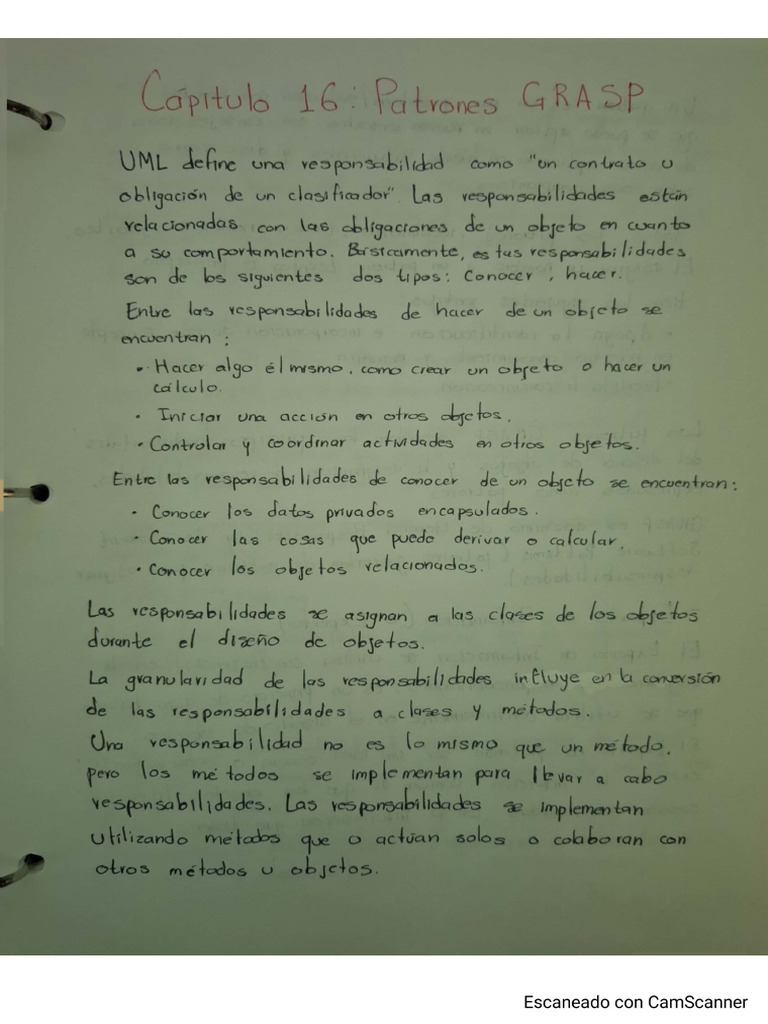 Capítulo 16: Patrones GRASP
UML define una responsabilidad como "un contrato u
obligación de un clasificador". Las responsabilidades están
relacionadas con las obligaciones de un objeto en cuanto
a su comportamiento. Básicamente, estas responsabilidades
son de los siguientes dos tipos: Conocer, hacer.
Entre las responsabilidades de hacer de un objeto se
encuentran:
• Hacer algo él mismo, como crear un objeto o hacer un
cálculo.
• Iniciar una acción en otros objetos.
• Controlar y coordinar actividades en otros objetos.
Entre las responsabilidades de conocer de un objeto se encuentran:
• Conocer los datos privados encapsulados.
• Conocer las cosas que puede derivar o calcular.
• Conocer los objetos relacionados.
Las responsabilidades se asignan a las clases de los objetos
durante el diseño de objetos.
La granularidad de las responsabilidades influye en la conversión
de las responsabilidades a clases y métodos.
Una responsabilidad no es lo mismo que un método,
pero los métodos se implementan para llevar a cabo
responsabilidades. Las responsabilidades se implementan
utilizando métodos que o actúan solos o colaboran con
otros métodos u objetos.
Escaneado con CamScanner